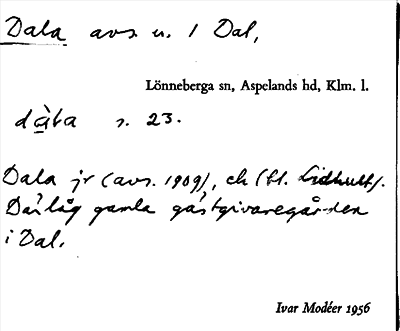 Dala avs. u. 1 Dal,
Lönneberga sn, Aspelands hd, Klm. l.
s. 23.
Dala jr (avs. 1909), ek (tl. Lidhult).
Där låg gamla gästgivaregården
i Dal.
Ivar Modéer 1956